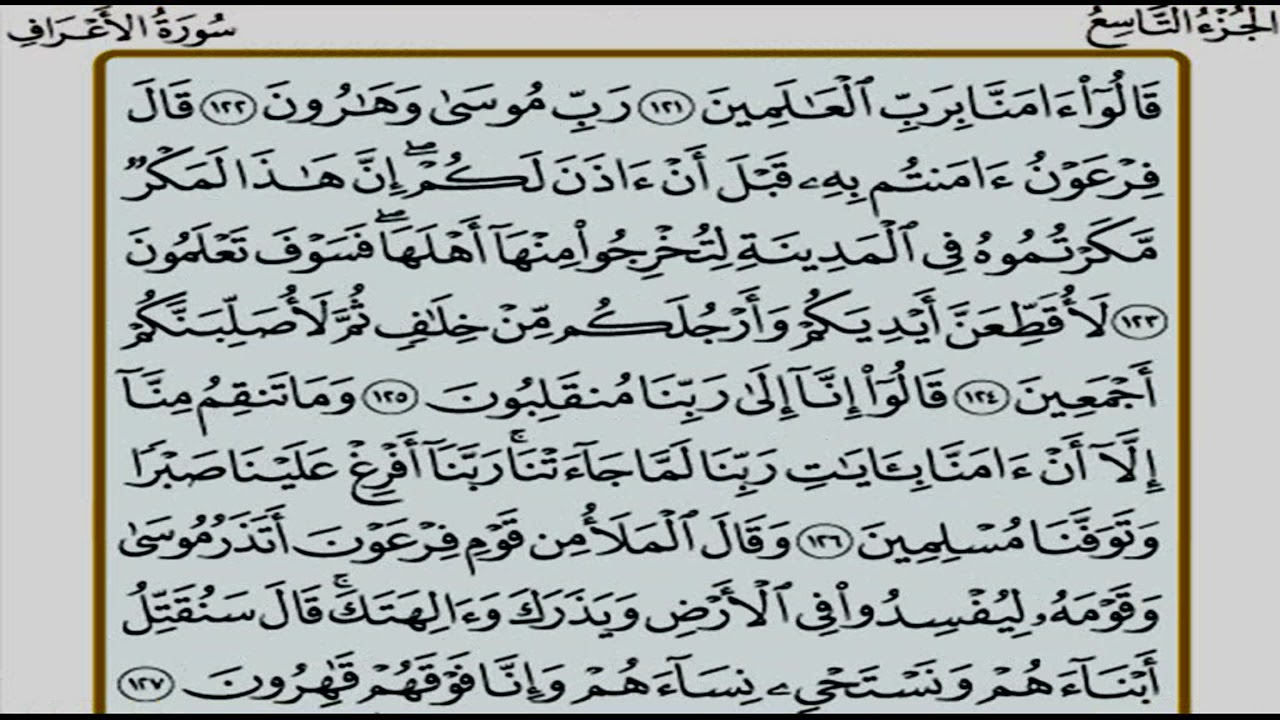 الجُزْءُ التَّاسِعُ
سُورَةُ الأَعْرَافِ
قَالُوٓا۟ ءَامَنَّا بِرَبِّ ٱلْعَٰلَمِينَ ١٢١ رَبِّ مُوسَىٰ وَهَٰرُونَ ١٢٢ قَالَ
فِرْعَوْنُ ءَامَنتُم بِهِۦ قَبْلَ أَنْ ءَاذَنَ لَكُمْ ۖ إِنَّ هَٰذَا لَمَكْرٌ
مَّكَرْتُمُوهُ فِى ٱلْمَدِينَةِ لِتُخْرِجُوا۟ مِنْهَآ أَهْلَهَا ۖ فَسَوْفَ تَعْلَمُونَ
١٢٣ لَأُقَطِّعَنَّ أَيْدِيَكُمْ وَأَرْجُلَكُم مِّنْ خِلَٰفٍ ثُمَّ لَأُصَلِّبَنَّكُمْ
أَجْمَعِينَ ١٢٤ قَالُوٓا۟ إِنَّآ إِلَىٰ رَبِّنَا مُنقَلِبُونَ ١٢٥ وَمَا تَنقِمُ مِنَّآ
إِلَّآ أَنْ ءَامَنَّا بِـَٔايَٰتِ رَبِّنَا لَمَّا جَآءَتْنَا ۚ رَبَّنَآ أَفْرِغْ عَلَيْنَا صَبْرًا
وَتَوَفَّنَا مُسْلِمِينَ ١٢٦ وَقَالَ ٱلْمَلَأُ مِن قَوْمِ فِرْعَوْنَ أَتَذَرُ مُوسَىٰ
وَقَوْمَهُۥ لِيُفْسِدُوا۟ فِى ٱلْأَرْضِ وَيَذَرَكَ وَءَالِهَتَكَ ۚ قَالَ سَنُقَتِّلُ
أَبْنَآءَهُمْ وَنَسْتَحْىِۦ نِسَآءَهُمْ وَإِنَّا فَوْقَهُمْ قَٰهِرُونَ ١٢٧